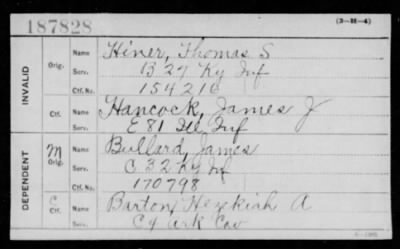 187828
(3-21-4)
INVALID
Orig. Name Hiner, Thomas S
Serv. B 27 Ky Inf
Ctf. No. 154216
Ctf. Name Hancock, James J
Serv. E 81 Ill Inf
DEPENDENT
M Orig. Name Bullard, James
Serv. C 32 Ky Inf
Ctf. No. 170798
C Ctf. Name Barton, Hezekiah A
Serv. C 4 Ark Cav